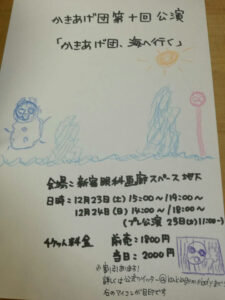 かきあげ団 第十回公演
「かきあげ団、海へ行く」
会場：新宿眼科画廊スペース地下
日時：12月23日(土) 15:00〜/19:00〜
12月24日(日) 14:00〜/18:00〜
(プレ公演 23日(土) 11:00〜)
チケット料金 前売：1800円
当日：2000円
※割引あります！
詳しくは公式ツイッター
右のアイコンが目印です